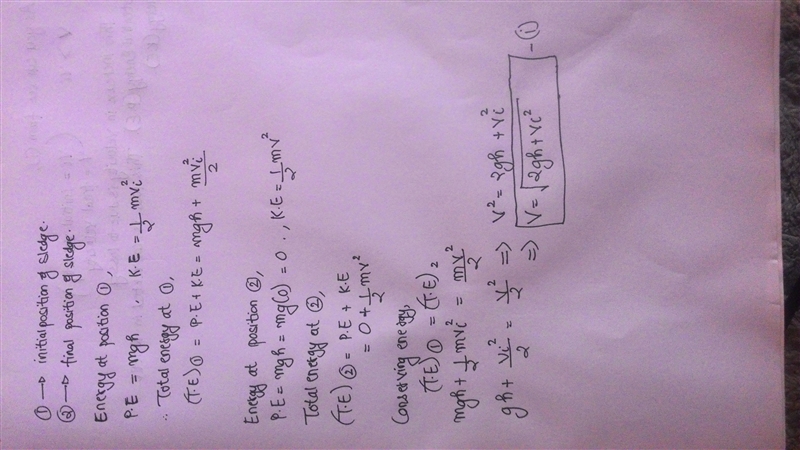 ① → initial position of sledge.
② → final position of sledge.
Energy at position ①,
P.E = mgh , K.E = 1/2 mvi²
∴ Total energy at ①,
(T.E)① = P.E + K.E = mgh + mvi²/2
Energy at position ②,
P.E = mgh = mg(0) = 0 ., K.E = 1/2 mv²
Total energy at ②,
(T.E)② = P.E + K.E
= 0 + 1/2 mv²
Conserving energy,
(T.E)① = (T.E)₂
mgh + 1/2 mvi² = mv²/2
gh + vi²/2 = v²/2 ⇒ v² = 2gh + vi²
⇒ v = √2gh + vi² - (i)